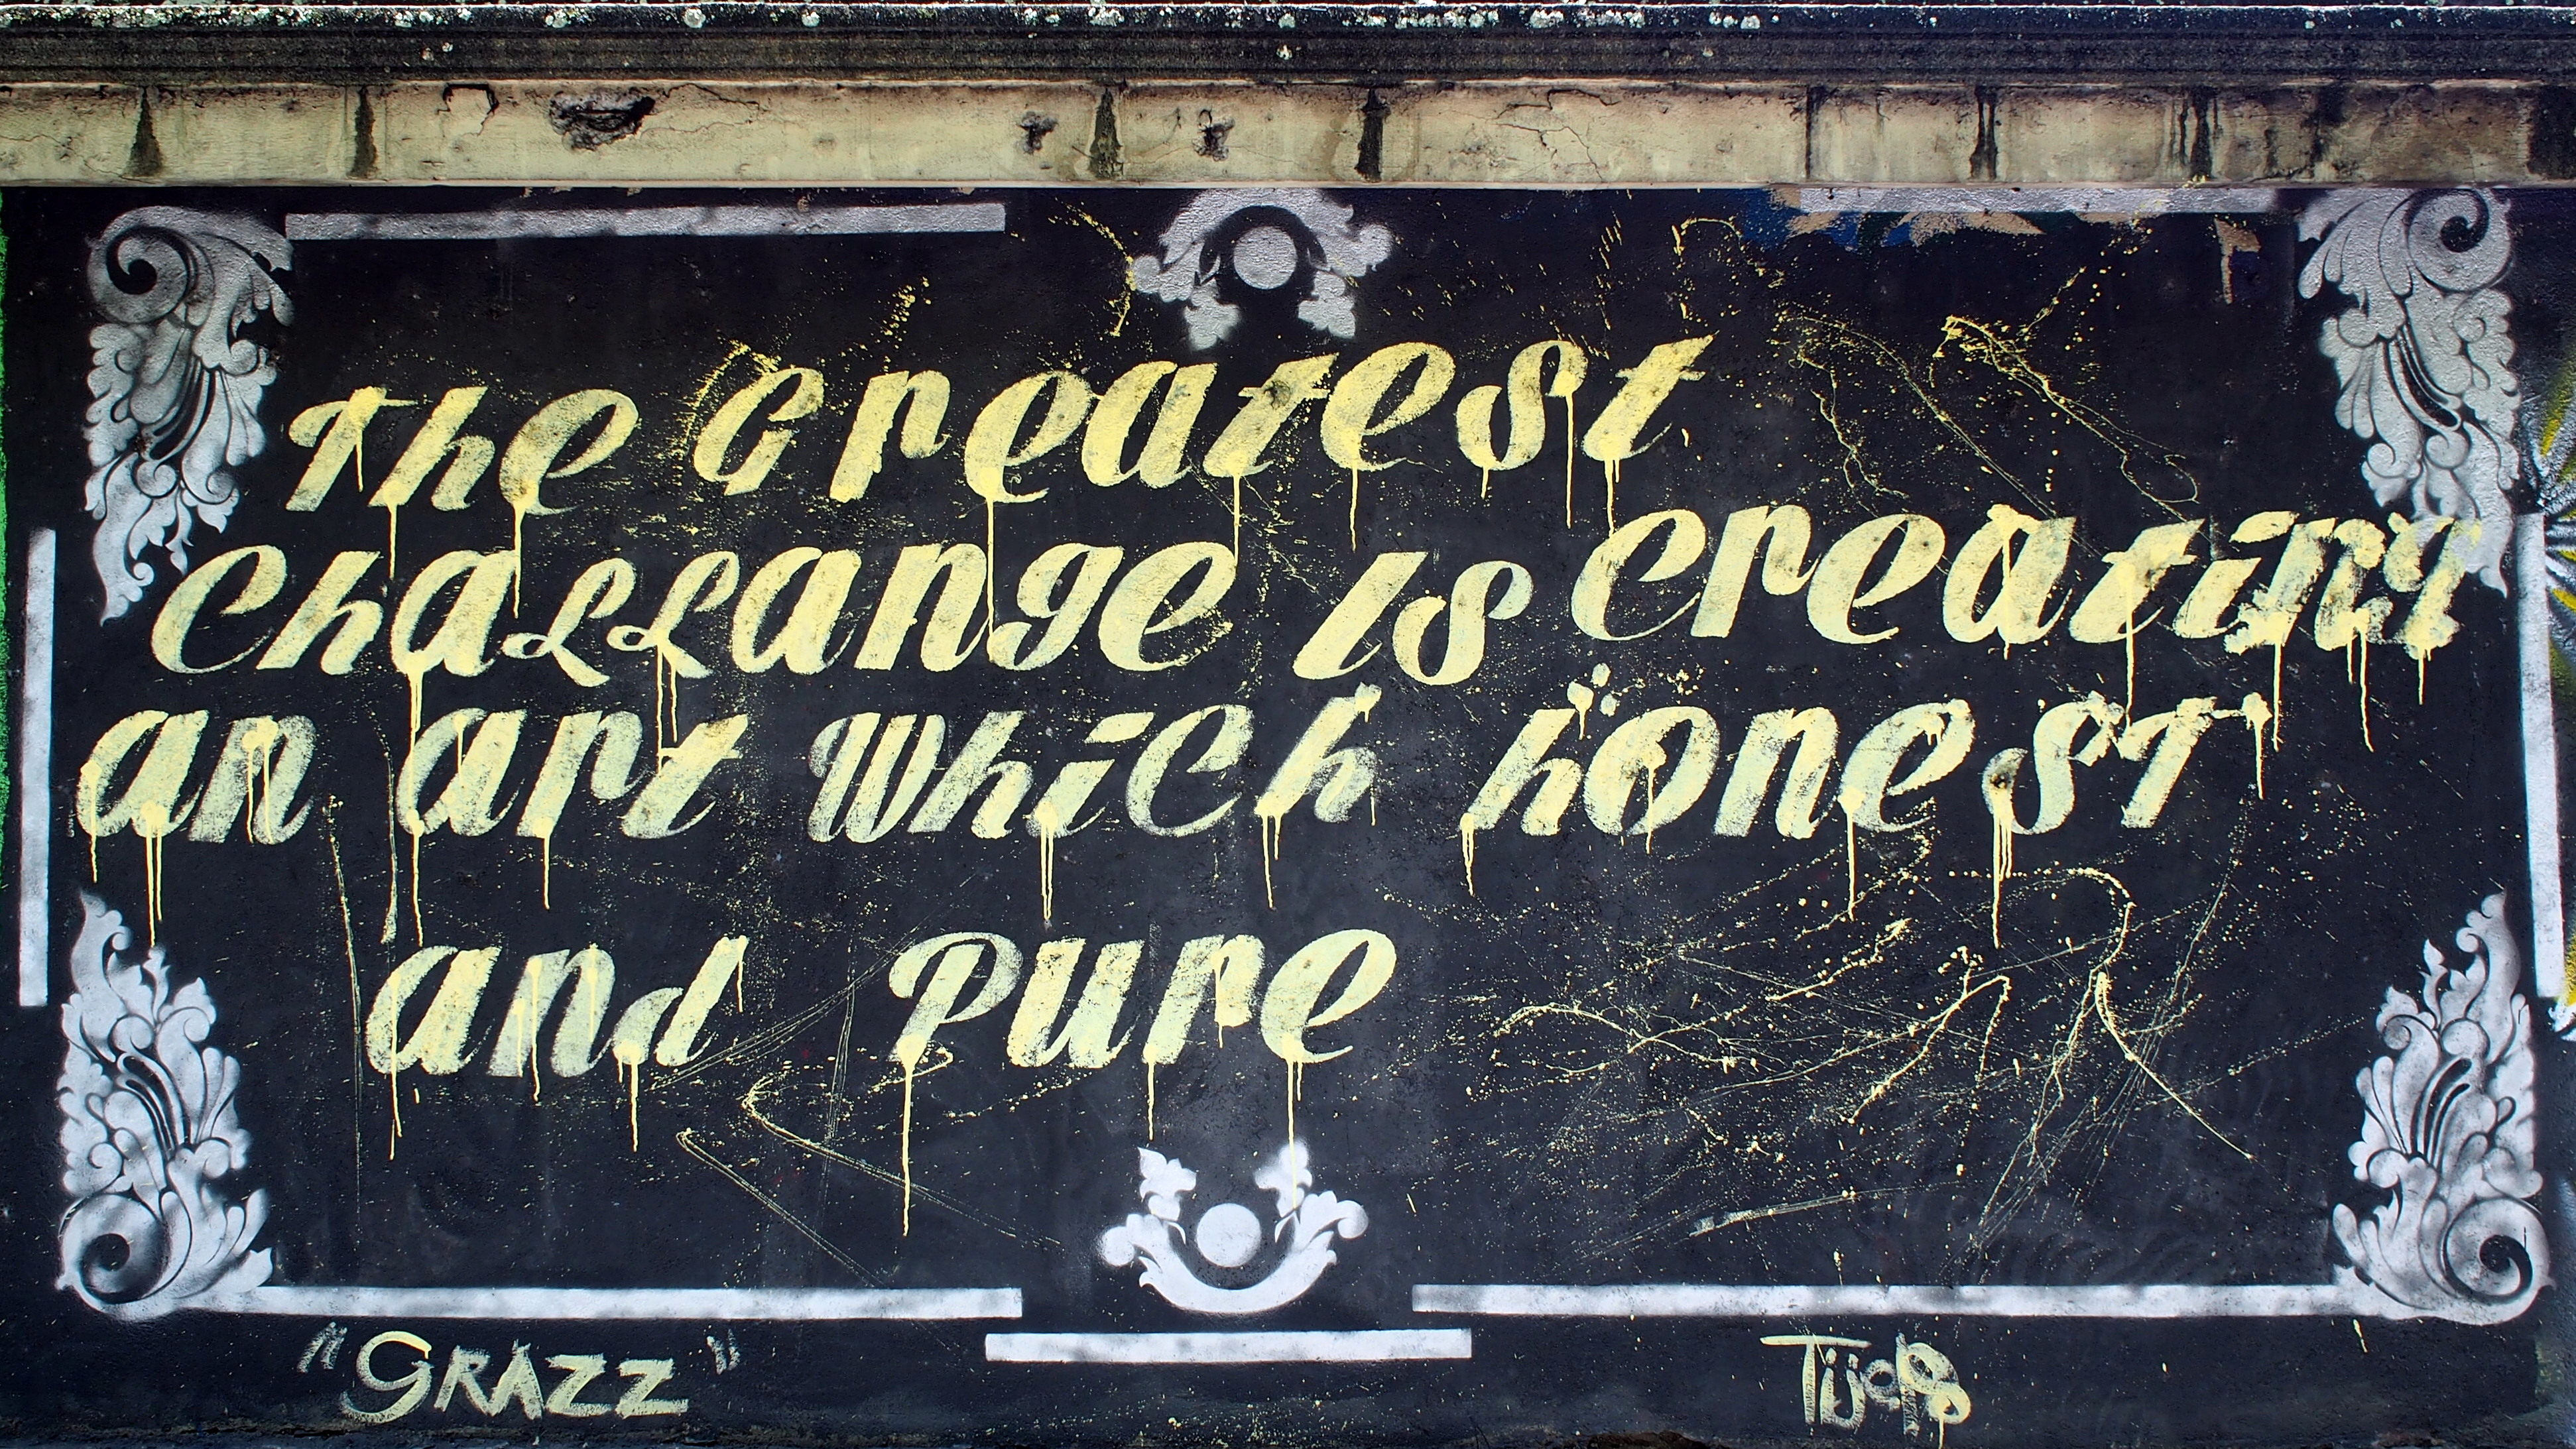 The Greatest
Challange is creating
an art which honest
and pure
"GRAZZ"